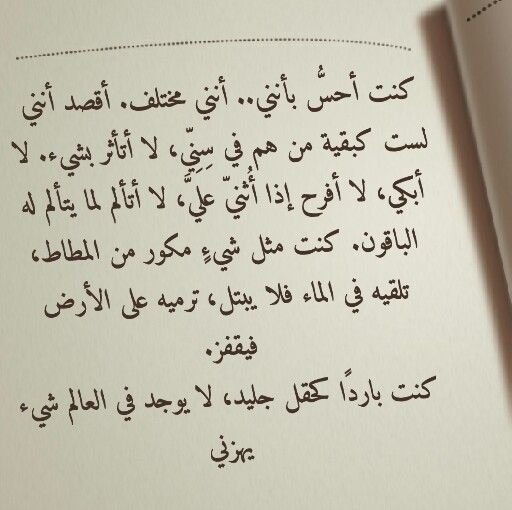 كنت أحسُّ بأنني.. أنني مختلف. أقصد أنني
لست كبقية من هم في سِنِيّ، لا أتأثر بشيء. لا
أبكي، لا أفرح إذا أُثنيّ عليَّ، لا أتألم لما يتألم له
الباقون. كنت مثل شيءٍ مكور من المطاط،
تلقيه في الماء فلا يبتل، ترميه على الأرض
فيقفز.
كنت باردًا كحقل جليد، لا يوجد في العالم شيء
يهزني